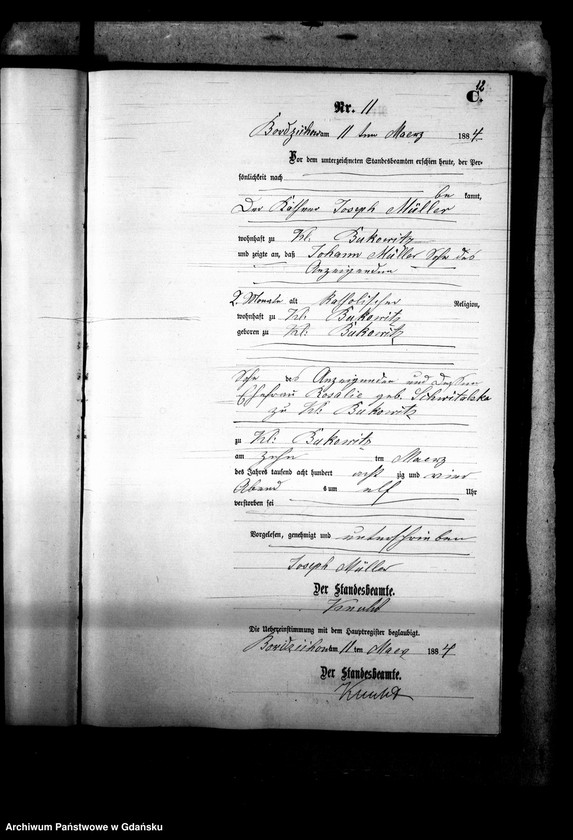 12
C.
Nr. 11
Bordzichow am 11 ten Maerz 1884
Vor dem unterzeichneten Standesbeamten erschien heute, der Per-
sönlichkeit nach
be kannt,
Der Joseph Müller
wohnhaft zu Kl: Bukowitz
und zeigte an, daß Johann Müller Sohn des
Anzeigenden
2 Monate alt katholischer Religion,
wohnhaft zu Kl: Bukowitz
geboren zu Kl: Bukowitz
Sohn des Anzeigenden und dessen
Ehefrau Rosalie geb. Schwitalska
zu Kl: Bukowitz
zu Kl: Bukowitz
am zehn ten Maerz
des Jahres tausend acht hundert acht zig und vier
Abend s um elf Uhr
verstorben sei
Vorgelesen, genehmigt und unterschrieben
Joseph Müller
Der Standesbeamte.
Die Uebereinstimmung mit dem Hauptregister beglaubigt.
Bordzichow am 11 ten Maerz 1884
Der Standesbeamte.
Archiwum Państwowe w Gdańsku